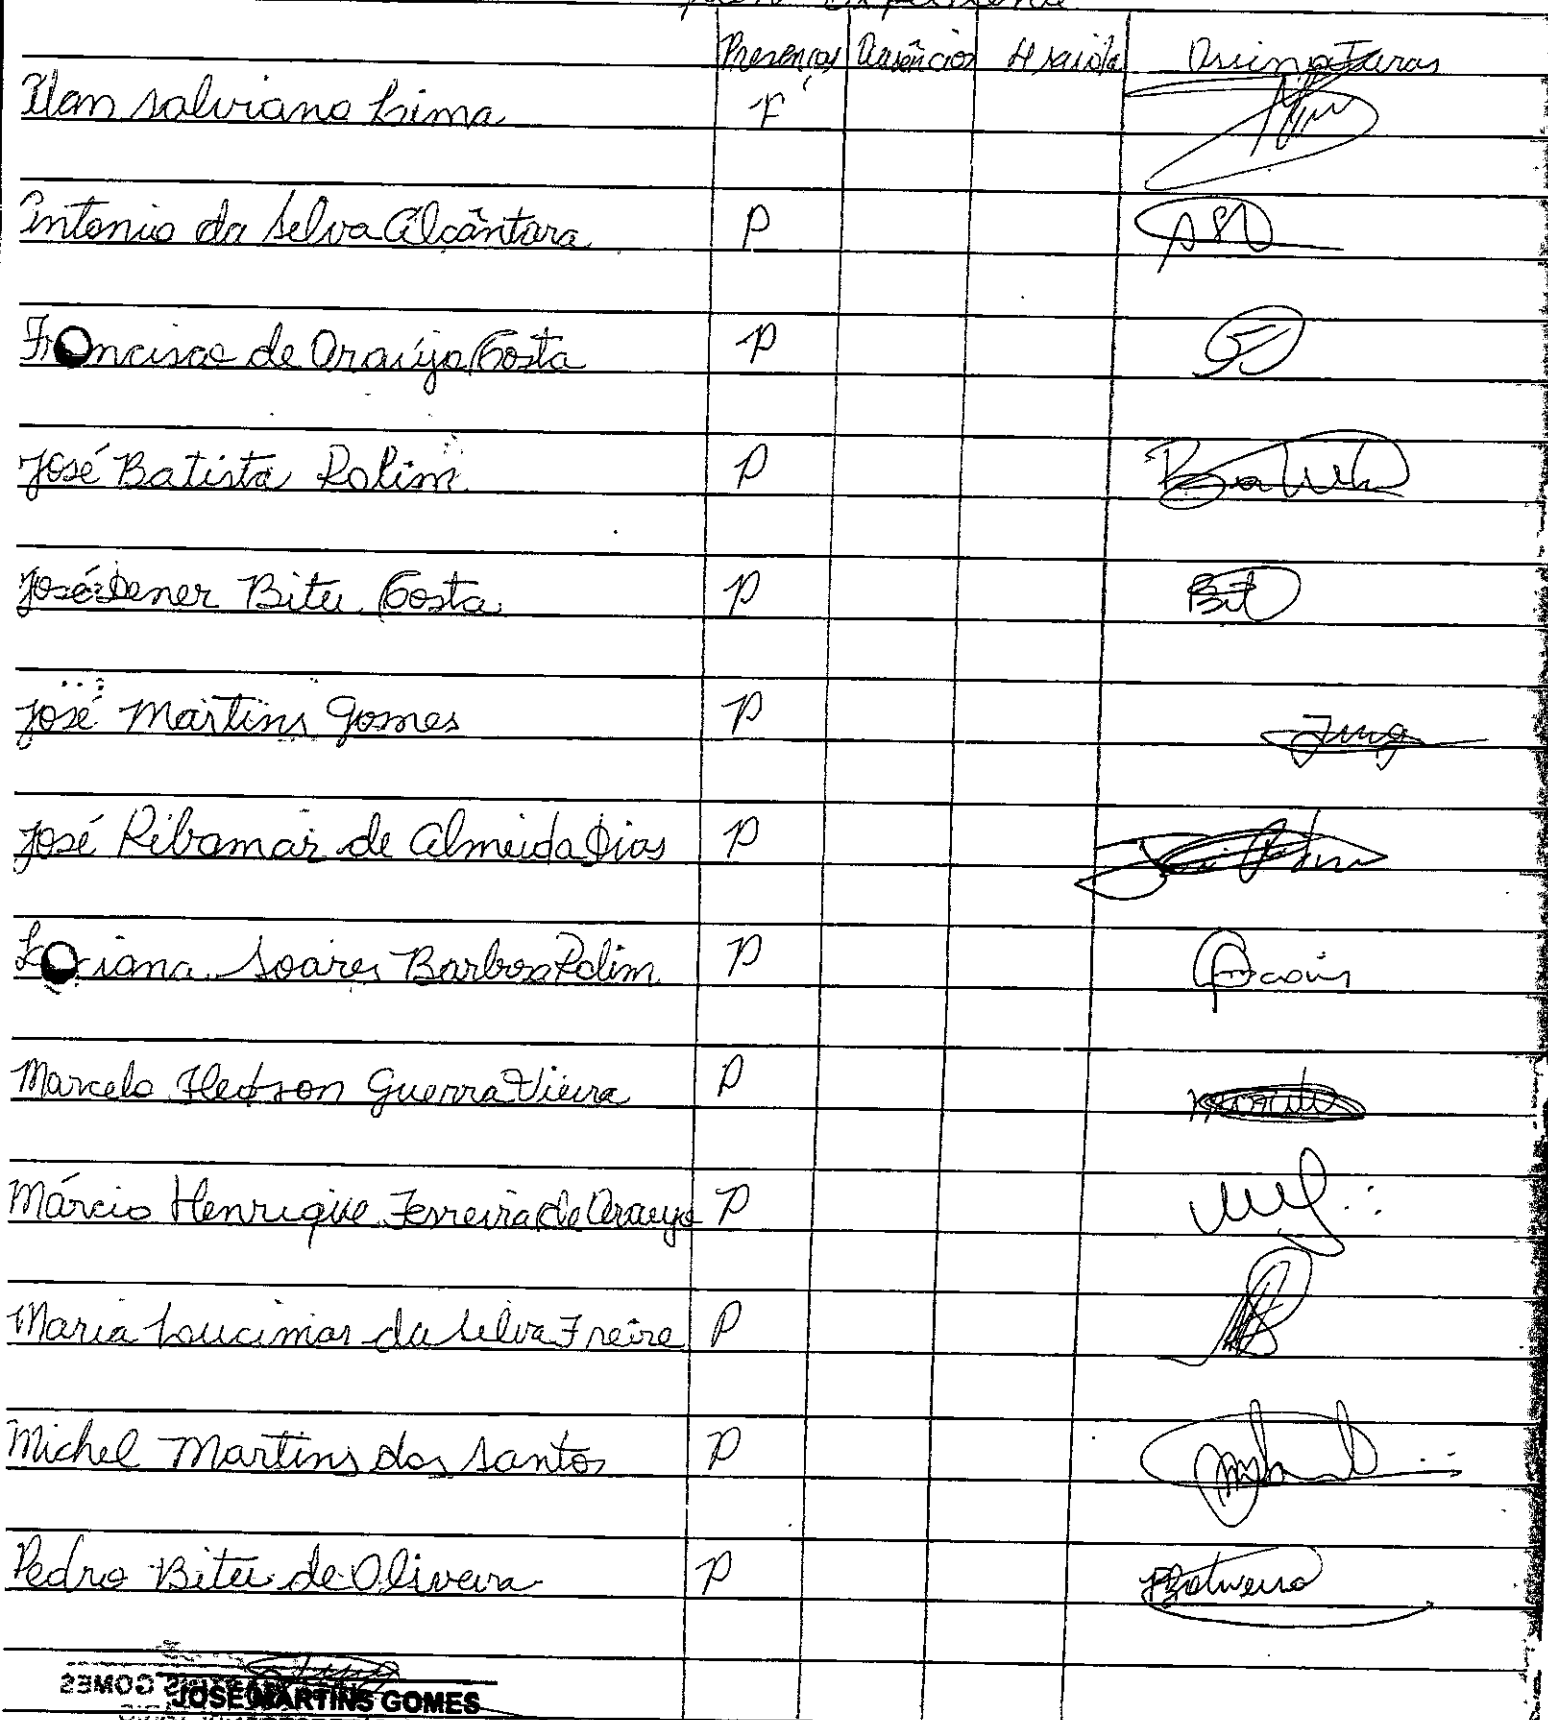 Presenças Ausências H saída Assinaturas
Salviano Lima F
Antonio da Silva Alcântara P
Francisco de Araújo Costa P
José Batista Rolim P
José Dener Bitu Costa P Bit
José Martins Gomes P
José Ribamar de Almeida Dias P
Soares Barbosa Rolim P
Marcelo Guerra Vieira P
Márcio Henrique Ferreira de Araujo P
Maria Lucimar da Silva Freire P
Michel Martins dos Santos P
Pedro Bitu de Oliveira P
JOSE MARTINS GOMES